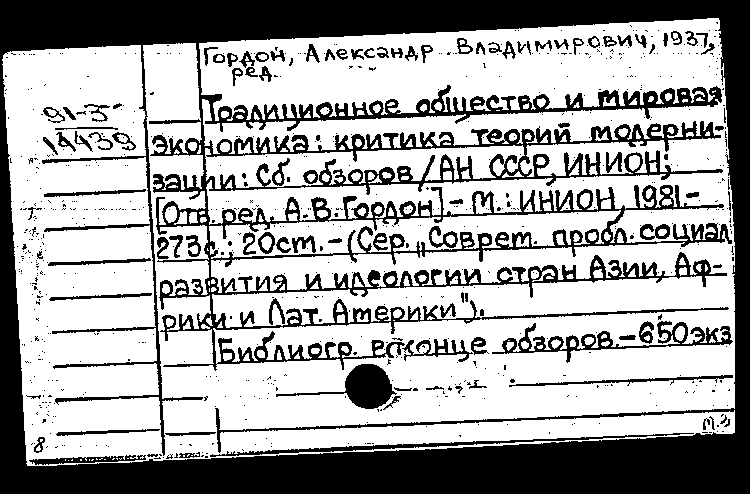 Гордон, Александр Владимирович, 1937,
ред.
91-3
14439
Традиционное общество и мировая
экономика: критика теорий модерни-
зации: Сб. обзоров / АН СССР, ИНИОН;
[Отв. ред. А.В. Гордон]. - М.: ИНИОН, 1981. -
273с.; 20см. - (Сер. „Соврем. пробл. социал
развития и идеологии стран Азии, Аф-
рики и Лат. Америки").
Библиогр. в конце обзоров. - 650экз
8